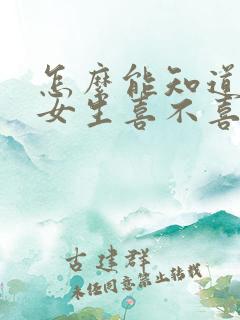 怎麼能知道
女生喜不喜
古建群
未任同意禁止转载